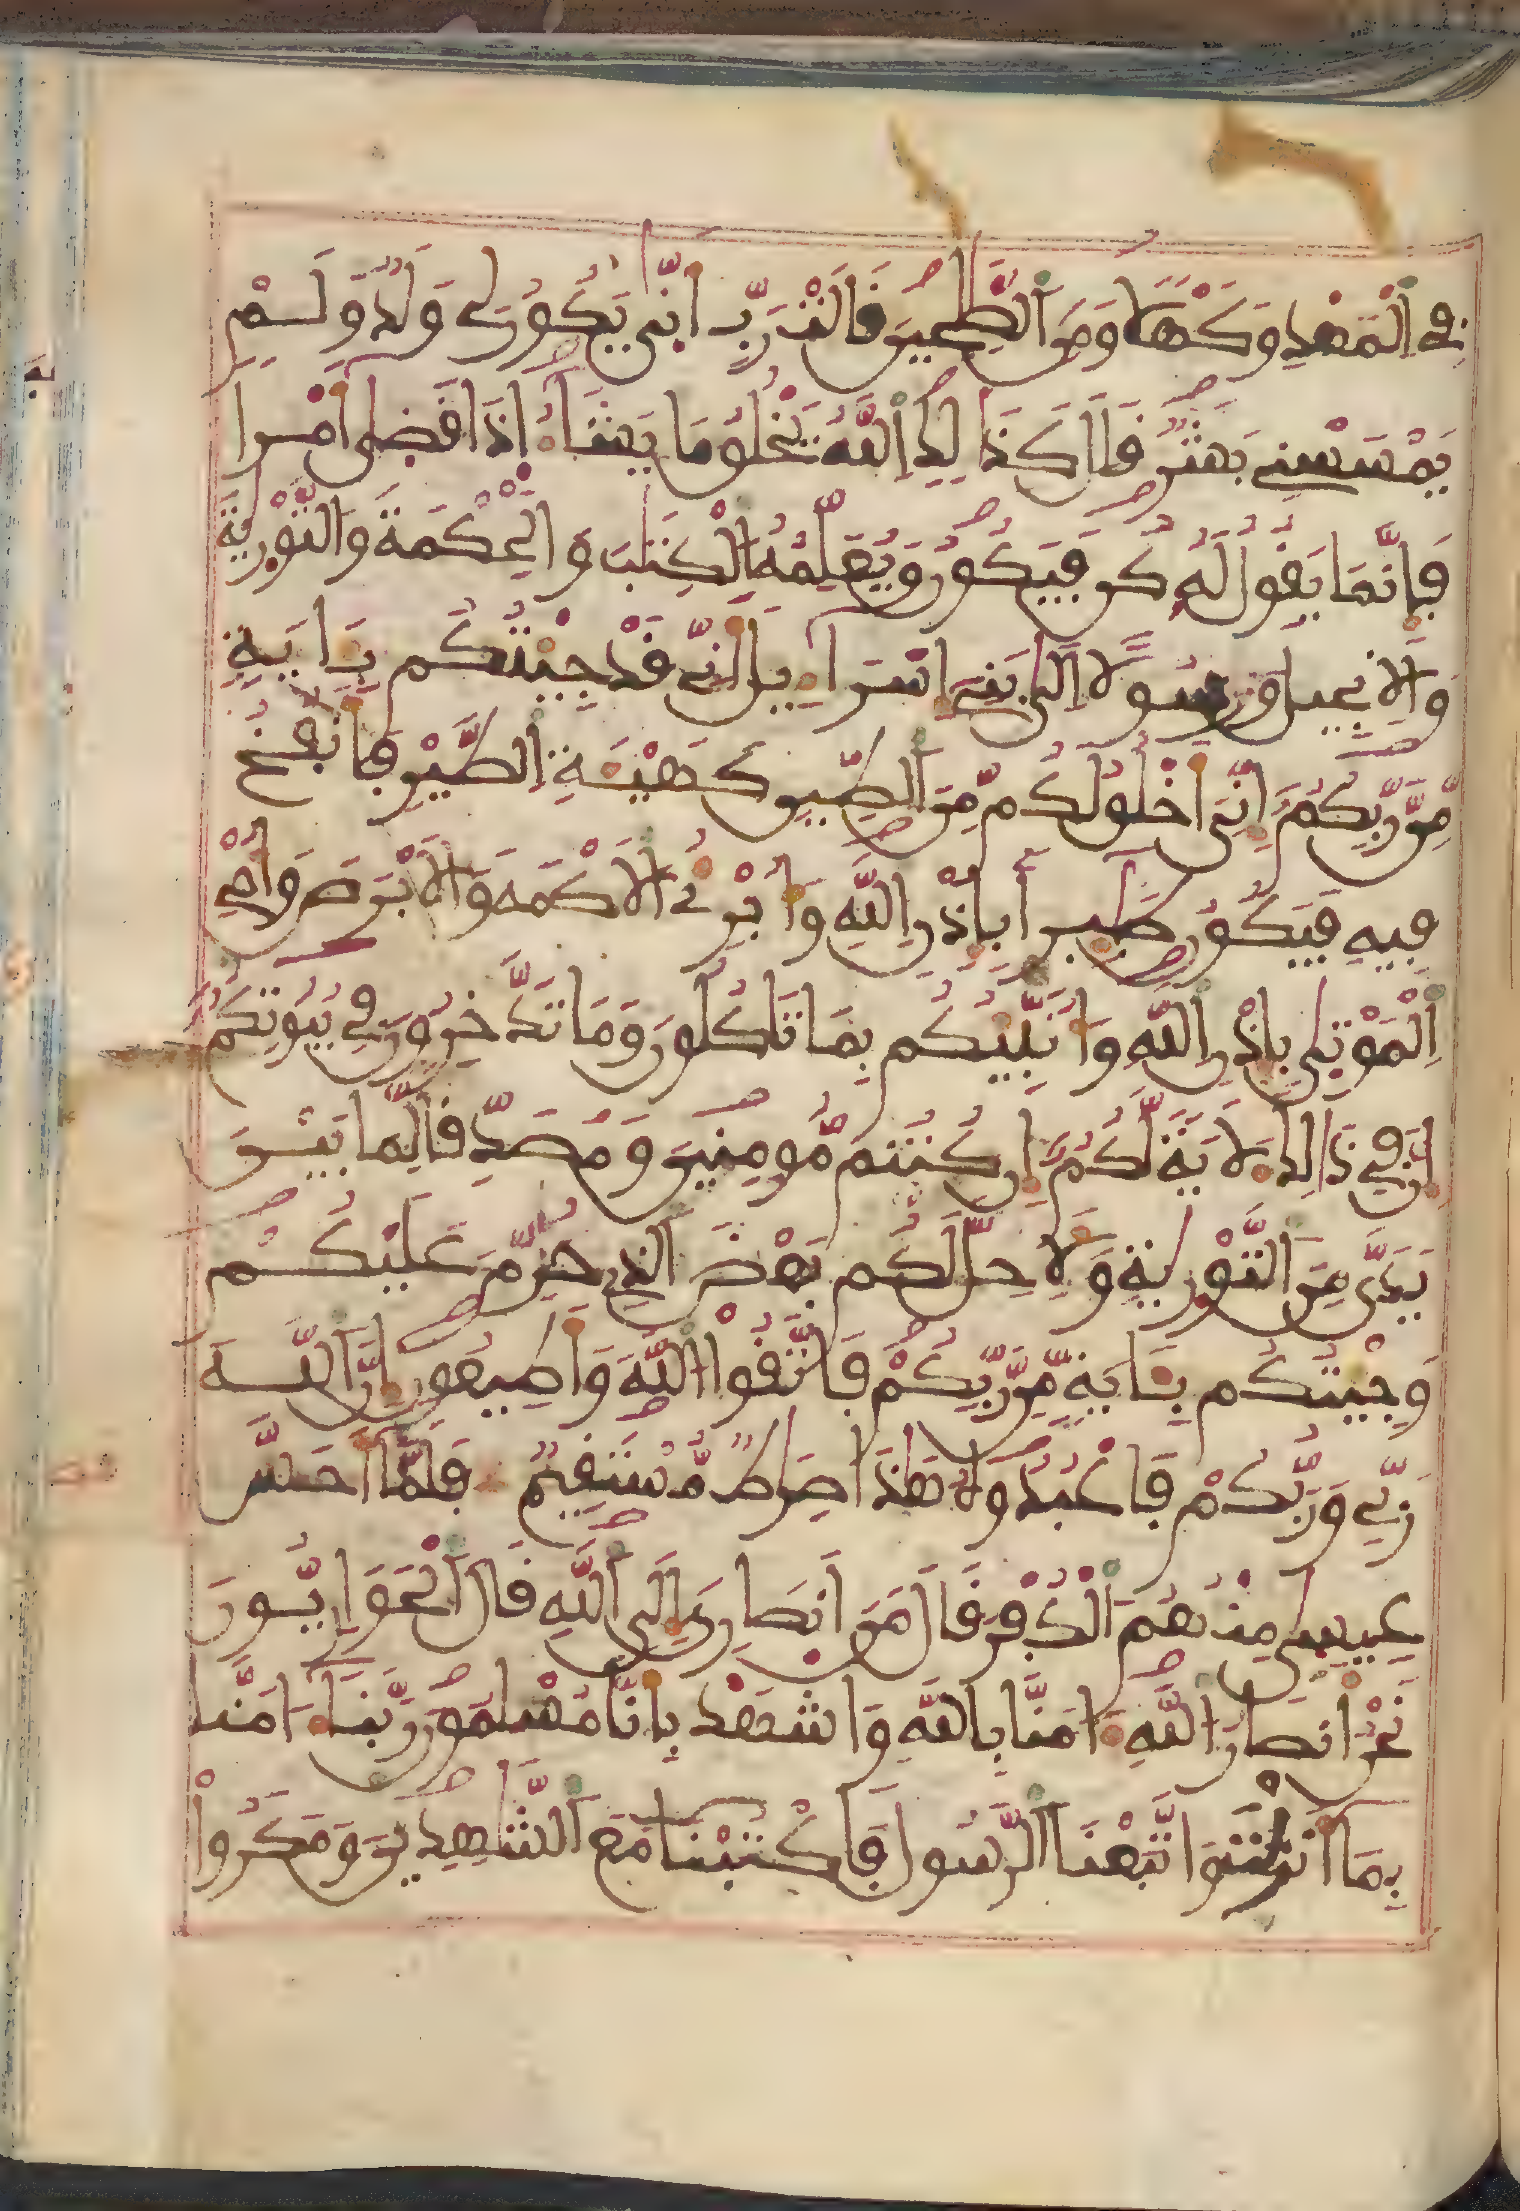 فِے اِ۬لْمَهْدِ وَكَهْلاٗ وَمِنَ اَ۬لصَّٰلِحِينَ قَالَتْ رَبِّ أَنّ۪يٰ يَكُونُ لِے وَلَدٞ وَلَمْ
يَمْسَسْنِے بَشَرٞ قَالَ كَذَٰلِكِ اِ۬للَّهُ يَخْلُقُ مَا يَشَآءُ اِذَا قَض۪يٰٓ أَمْراٗ
فَإِنَّمَا يَقُولُ لَهُۥ كُن فَيَكُونُ وَيُعَلِّمُهُ اُ۬لْكِتَٰبَ وَالْحِكْمَةَ وَالتَّوْر۪يٰةَ
وَالِانجِيلَ وَرَسُولاً اِلَيٰ بَنِےٓ إِسْرَآءِيلَ أَنِّے قَدْ جِئْتُكُم بِـَٔايَةٖ
مِّن رَّبِّكُمُۥٓ إِنِّيَ أَخْلُقُ لَكُم مِّنَ اَ۬لطِّينِ كَهَيْـَٔةِ اِ۬لطَّيْرِ فَأَنفُخُ
فِيهِ فَيَكُونُ طَٰٓئِراَۢ بِإِذْنِ اِ۬للَّهِ وَأُبْرِۓُ اُ۬لَاكْمَهَ وَالَابْرَصَ وَأُحْيِ
اِ۬لْمَوْت۪يٰ بِإِذْنِ اِ۬للَّهِ وَأُنَبِّئُكُم بِمَا تَاكُلُونَ وَمَا تَدَّخِرُونَ فِے بُيُوتِكُمُۥٓ
إِنَّ فِے ذَٰلِكَ ءَلَايَةٗ لَّكُمُۥٓ إِن كُنتُم مُّومِنِينَ وَمُصَدِّقاٗ لِّمَا بَيْنَ
يَدَيَّ مِنَ اَ۬لتَّوْر۪يٰةِ وَلِأُحِلَّ لَكُم بَعْضَ اَ۬لذِے حُرِّمَ عَلَيْكُمْ
وَجِئْتُكُم بِـَٔايَةٖ مِّن رَّبِّكُمْ فَاتَّقُوا۟ اُ۬للَّهَ وَأَطِيعُونِ إِنَّ اَ۬للَّهَ
رَبِّے وَرَبُّكُمْ فَاعْبُدُوهُ هَٰذَا صِرَٰطٞ مُّسْتَقِيمٞ فَلَمَّآ أَحَسَّ
عِيس۪يٰ مِنْهُمُ اُ۬لْكُفْرَ قَالَ مَنَ اَنصَارِيَ إِلَي اَ۬للَّهِ قَالَ اَ۬لْحَوَارِيُّونَ
نَحْنُ أَنصَارُ اُ۬للَّهِ ءَامَنَّا بِاللَّهِ وَاشْهَدْ بِأَنَّا مُسْلِمُونَ رَبَّنَآ ءَامَنَّا
بِمَآ أَنزَلْتَ وَاتَّبَعْنَا اَ۬لرَّسُولَ فَاكْتُبْنَا مَعَ اَ۬لشَّٰهِدِينَ وَمَكَرُوا۟